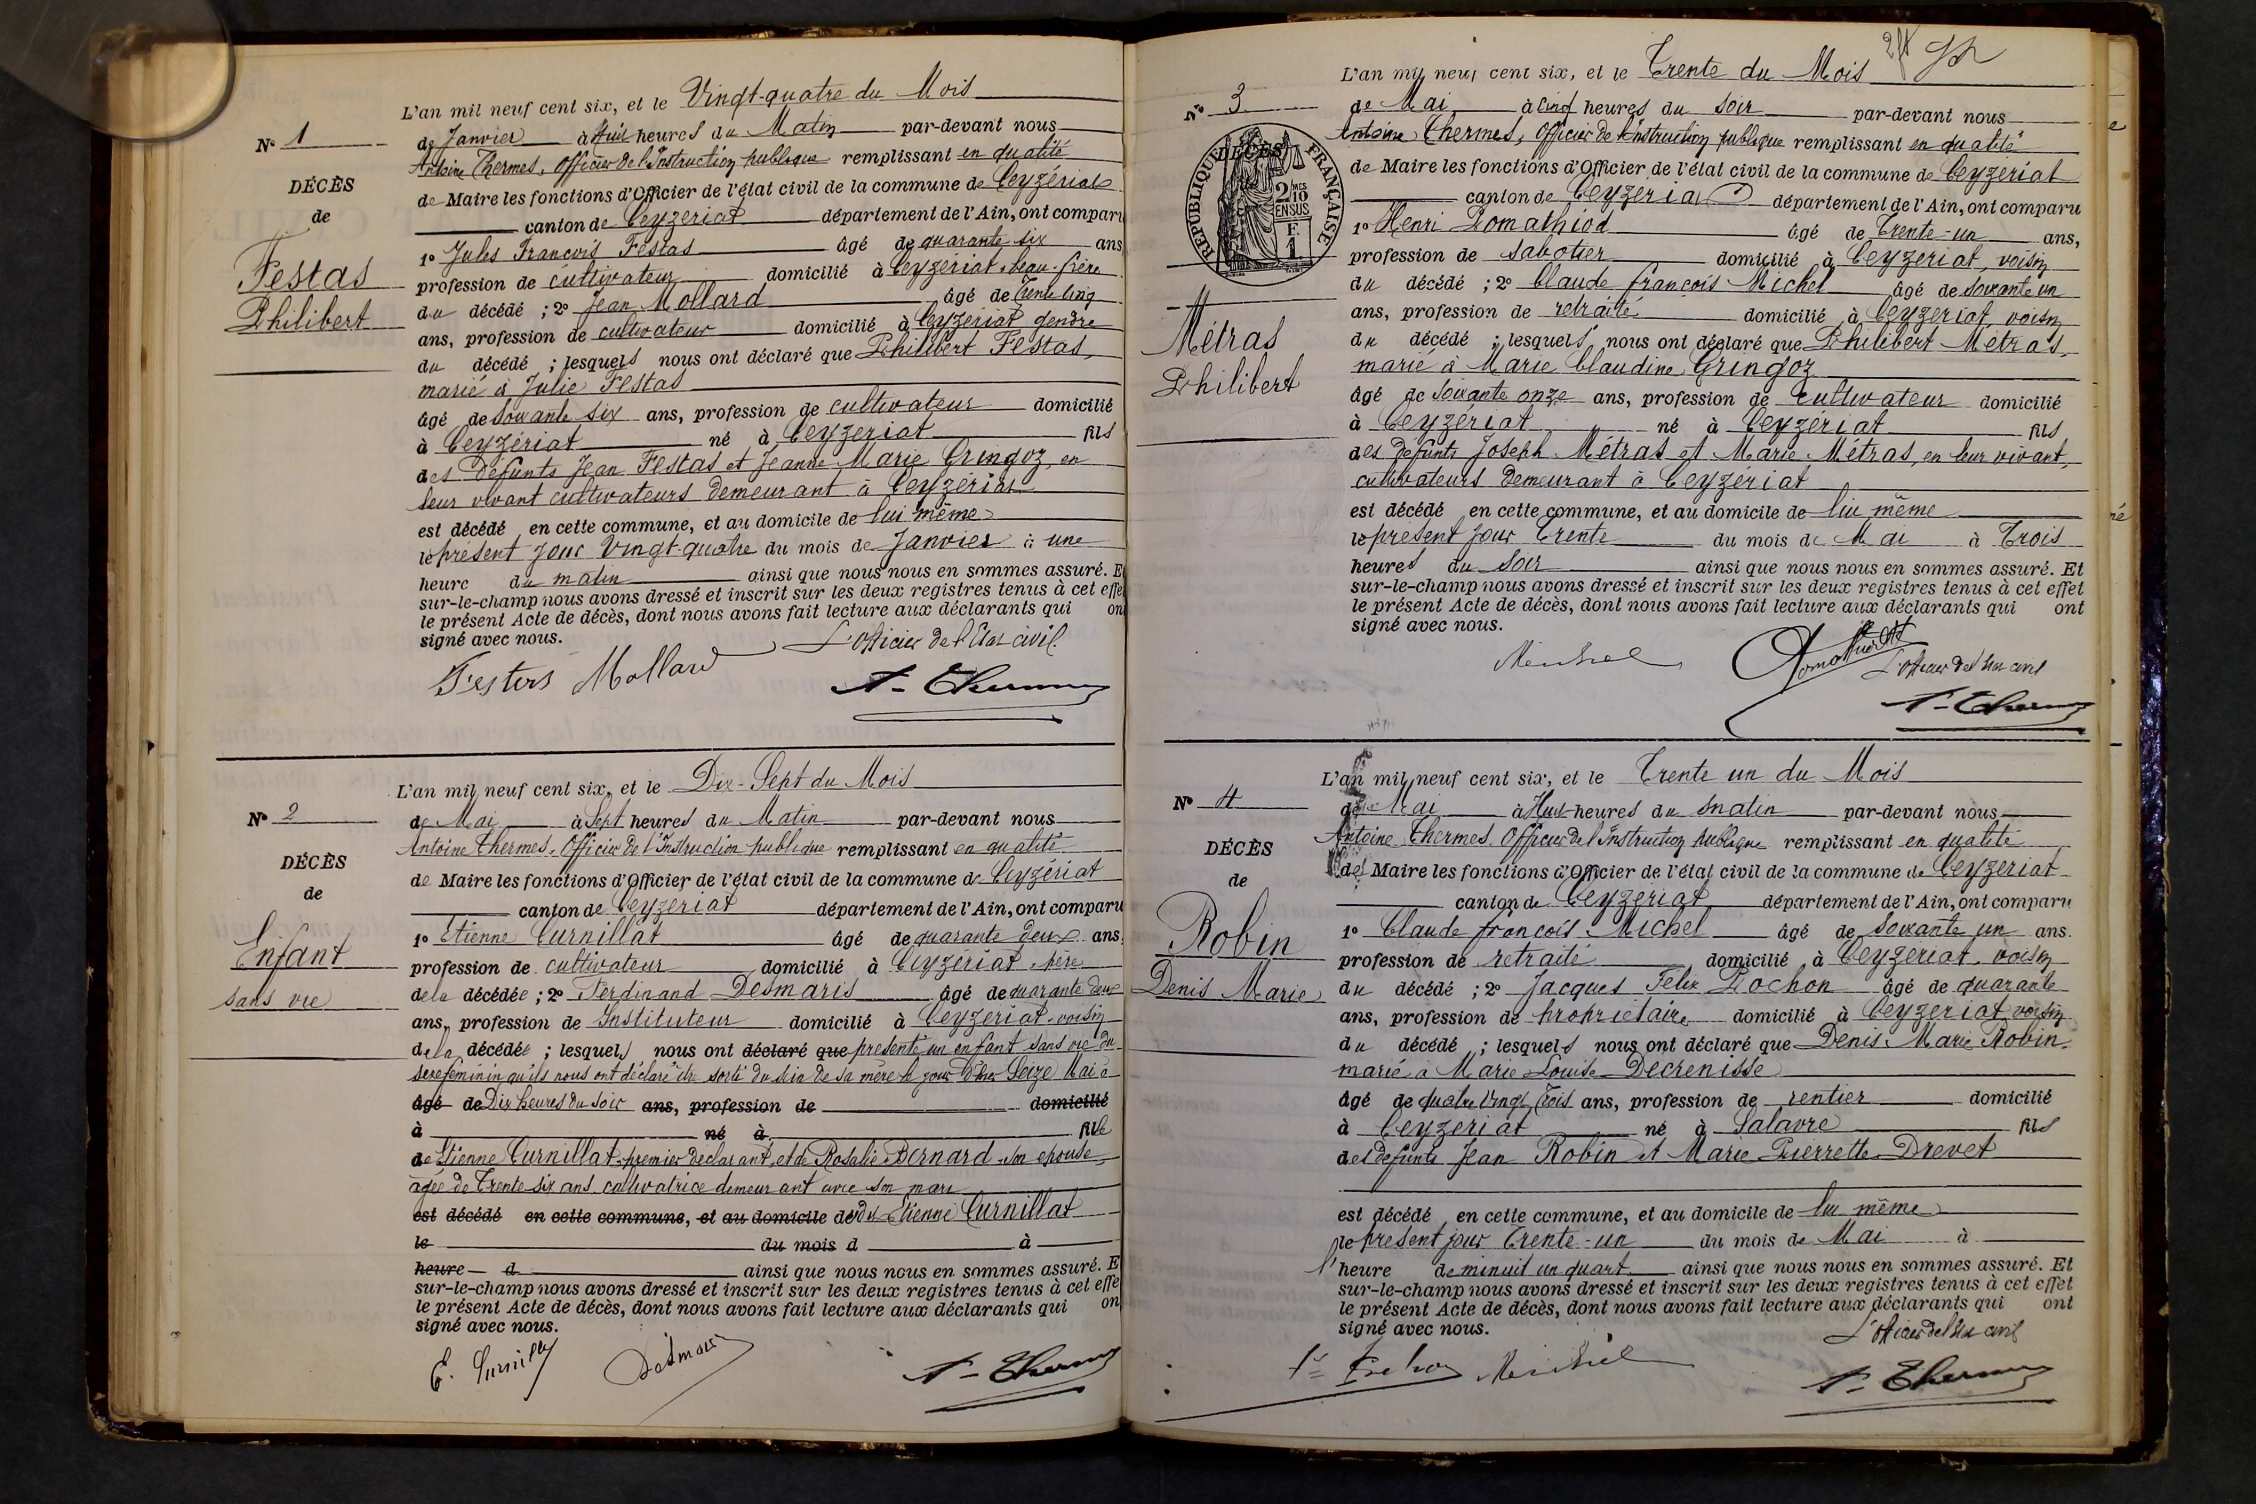 L'an mil neuf cent six, et le Vingt-quatre du Mois
N° 1
de Janvier à Huit heures du Matin par-devant nous
Antoine Thermes, Officier de l'Instruction publique remplissant en qualité
DÉCÈS
de Maire les fonctions d'Officier de l'état civil de la commune de Ceyzériat
de
canton de Ceyzériat département de l'Ain, ont comparu
1° Jules François Festas âgé de quarante six ans
Festas
profession de cultivateur domicilié à Ceyzériat, beau-frère
Philibert
du décédé ; 2° Jean Mollard âgé de trente cinq
ans, profession de cultivateur domicilié à Ceyzériat gendre
du décédé ; lesquels nous ont déclaré que Philibert Festas,
marié à Julie Festas
âgé de Soixante six ans, profession de cultivateur domicilié
à Ceyzériat né à Ceyzeriat fils
des défunts Jean Festas et Jeanne Marie Gringoz, en
leur vivant cultivateurs demeurant à Ceyzériat
est décédé en cette commune, et au domicile de lui même
le présent jour Vingt-quatre du mois de Janvier à une
heure du matin ainsi que nous nous en sommes assuré. E
sur-le-champ nous avons dressé et inscrit sur les deux registres tenus à cet effet
le présent Acte de décès, dont nous avons fait lecture aux déclarants qui ont
signé avec nous.
L'officier de l'Etat civil.
Festas Mollard
A- Thermes
L'an mil neuf cent six, et le Dix-Sept du Mois
N° 2
de Mai à Sept heures du Matin par-devant nous
Antoine Thermes, Officier de l'Instruction publique remplissant en qualité
DÉCÈS
de Maire les fonctions d'Officier de l'état civil de la commune de Ceyzériat
de
canton de Ceyzeriat département de l'Ain, ont comparu
1° Etienne Curnillat âgé de quarante deux ans,
Enfant
profession de cultivateur domicilié à Ceyzeriat père
sans vie
de la décédée ; 2° Ferdinand Desmaris âgé de quarante deux
ans, profession de Instituteur domicilié à Ceyzeriat voisin
de la décédée ; lesquels nous ont déclaré que présenté un enfant sans vie du
sexe féminin qu'ils nous ont déclaré être sorti du sein de sa mère le jour d'hier Seize Mai à
âgé de Dix heures du Soir ans, profession de domicilié
à né à fille
de Etienne Curnillat premier déclarant, et de Rosalie Bernard son épouse,
âgée de Trente six ans, cultivatrice demeurant avec son mari
est décédé en cette commune, et au domicile de dit Etienne Curnillat
le du mois d à
heure d ainsi que nous nous en sommes assuré. E
sur-le-champ nous avons dressé et inscrit sur les deux registres tenus à cet effe
le présent Acte de décès, dont nous avons fait lecture aux déclarants qui on
signé avec nous.
E. Curnillat Desmaris
A- Thermes
L'an mil neuf cent six, et le Trente du Mois
N° 3
de Mai à Cinq heures du Soir par-devant nous
Antoine Thermes, Officier de l'Instruction publique remplissant en qualité
RÉPUBLIQUE FRANÇAISE
DÉCÈS
2 MES 10 EN SUS
F. 1
de Maire les fonctions d'Officier de l'état civil de la commune de Ceyzériat
canton de Ceyzeriat département de l'Ain, ont comparu
1° Henri Pomathiod âgé de Trente-un ans,
profession de Sabotier domicilié à Ceyzeriat, voisin
du décédé ; 2° Claude François Michel âgé de Soixante un
Métras
Philibert
ans, profession de retraité domicilié à Ceyzeriat, voisin
du décédé ; lesquels nous ont déclaré que Philibert Métras,
marié à Marie Claudine Gringoz
âgé de Soixante onze ans, profession de Cultivateur domicilié
à Ceyzériat né à Ceyzériat fils
des défunts Joseph Métras et Marie Métras, en leur vivant,
cultivateurs demeurant à Ceyzériat
est décédé en cette commune, et au domicile de lui même
le présent jour Trente du mois de Mai à Trois
heures du Soir ainsi que nous nous en sommes assuré. Et
sur-le-champ nous avons dressé et inscrit sur les deux registres tenus à cet effet
le présent Acte de décès, dont nous avons fait lecture aux déclarants qui ont
signé avec nous.
Michel Pomathiod
L'officier de l'Etat civil
A- Thermes
L'an mil neuf cent six, et le Trente un du Mois
N° 4
de Mai à Huit heures du matin par-devant nous
Antoine Thermes, Officier de l'Instruction publique remplissant en qualité
DÉCÈS
de Maire les fonctions d'Officier de l'état civil de la commune de Ceyzeriat
de
canton de Ceyzeriat département de l'Ain, ont comparu
1° Claude François Michel âgé de Soixante un ans.
Robin
profession de retraité domicilié à Ceyzeriat, voisin
Denis Marie
du décédé ; 2° Jacques Felix Pochon âgé de quarante
ans, profession de propriétaire domicilié à Ceyzeriat, voisin
du décédé ; lesquels nous ont déclaré que Denis Marie Robin,
marié à Marie Louise Decrenisse
âgé de quatre vingt trois ans, profession de rentier domicilié
à Ceyzeriat né à Salavre fils
des défunts Jean Robin et Marie Pierrette Drevet
est décédé en cette commune, et au domicile de lui même
le présent jour Trente-un du mois de Mai à
l'heure de minuit un quart ainsi que nous nous en sommes assuré. Et
sur-le-champ nous avons dressé et inscrit sur les deux registres tenus à cet effet
le présent Acte de décès, dont nous avons fait lecture aux déclarants qui ont
signé avec nous.
L'officier de l'Etat civil
Michel
A- Thermes